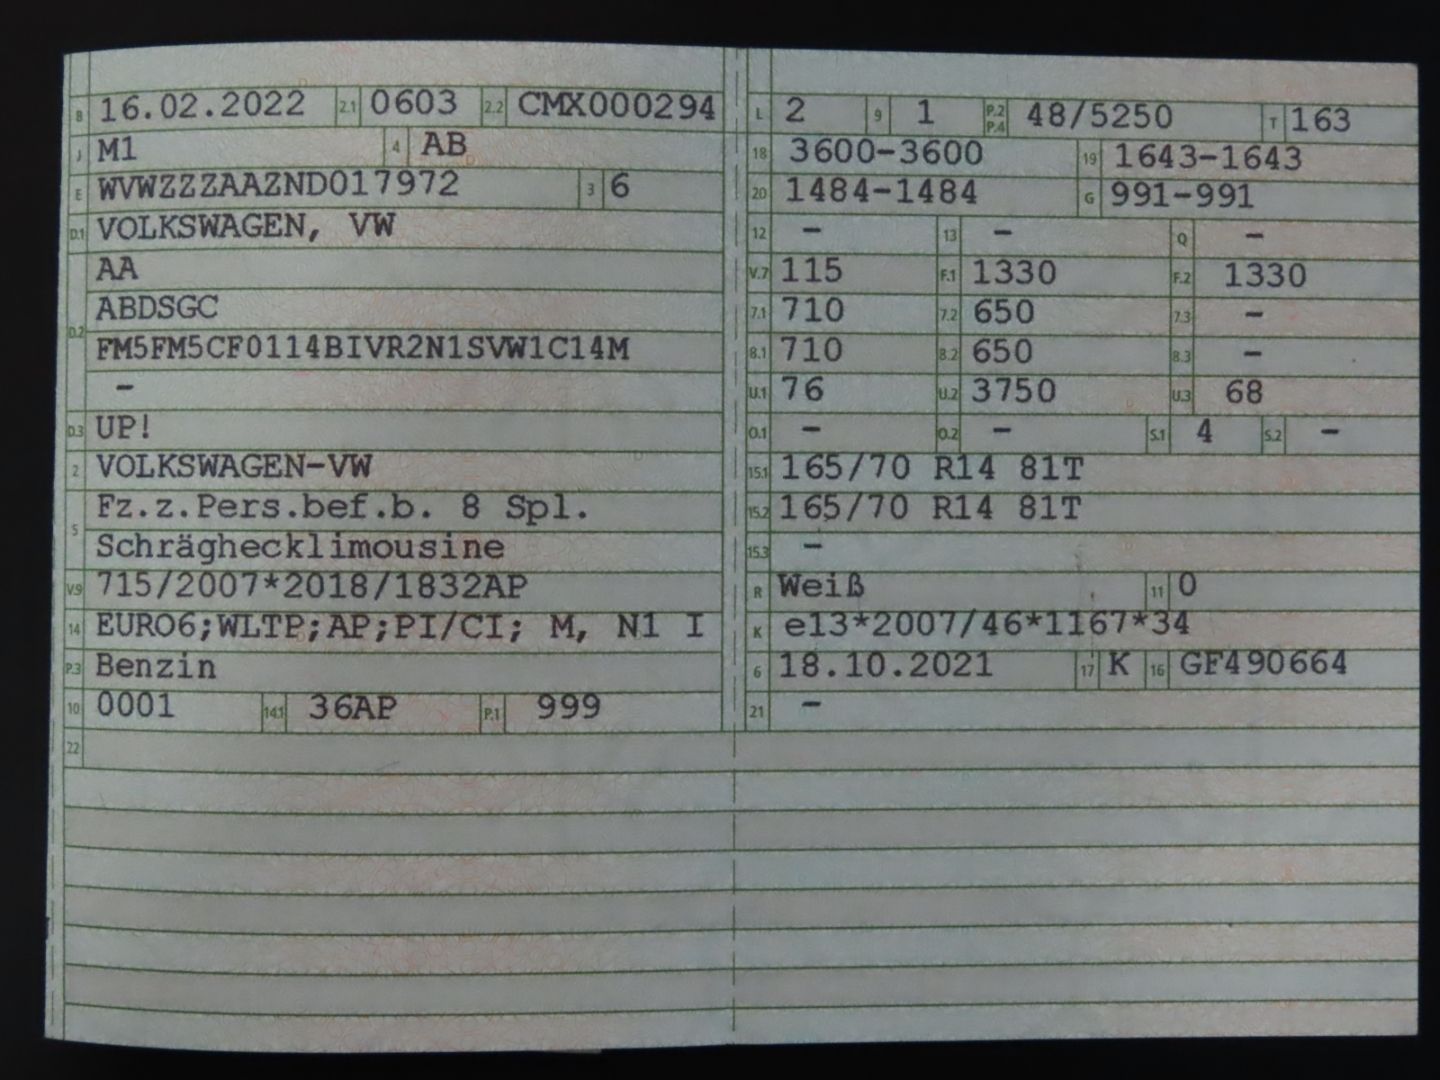 B 16.02.2022 2.1 0603 2.2 CMX000294
J M1 4 AB
E WVWZZZAAZND017972 3 6
D.1 VOLKSWAGEN, VW
AA
ABDSGC
D.2
FM5FM5CF0114BIVR2N1SVW1C14M
-
D.3 UP!
2 VOLKSWAGEN-VW
Fz.z.Pers.bef.b. 8 Spl.
5
Schräghecklimousine
V.9 715/2007*2018/1832AP
14 EURO6;WLTP;AP;PI/CI; M, N1 I
P.3 Benzin
10 0001 14.1 36AP P.1 999
22
L 2 9 1 P.2 P.4 48/5250 T 163
18 3600-3600 19 1643-1643
20 1484-1484 G 991-991
12 - 13 - Q -
V.7 115 F.1 1330 F.2 1330
7.1 710 7.2 650 7.3 -
8.1 710 8.2 650 8.3 -
U.1 76 U.2 3750 U.3 68
O.1 - O.2 - S.1 4 S.2 -
15.1 165/70 R14 81T
15.2 165/70 R14 81T
15.3 -
R Weiß 11 0
K e13*2007/46*1167*34
6 18.10.2021 17 K 16 GF490664
21 -